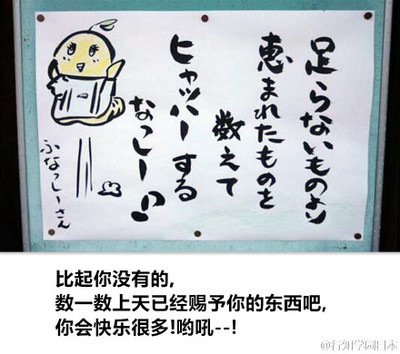 足らないものより
恵まれたものを
数えて
ヒャッハーする
なっしー♪
ふなっしーさん
比起你没有的,
数一数上天已经赐予你的东西吧,
你会快乐很多!哟吼--!
@行知学园日本